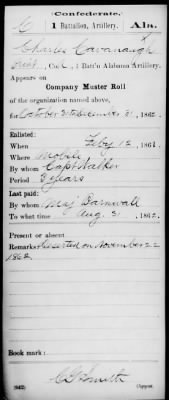 Confederate.
C 1 Battalion, Artillery. Ala.
Charles Cavanaugh
Co. C, 1 Batt'n Alabama Artillery.
Appears on
Company Muster Roll
of the organization named above,
for October 31 to December 31, 1862.
Enlisted:
When Feby 12, 1862.
Where Mobile
By whom Capt Walker
Period 3 years
Last paid:
By whom Maj Barnwall
To what time Aug. 31, 1862.
Present or absent
Remarks: Deserted on November 22
1862.
Book mark:
(642) Copyist.